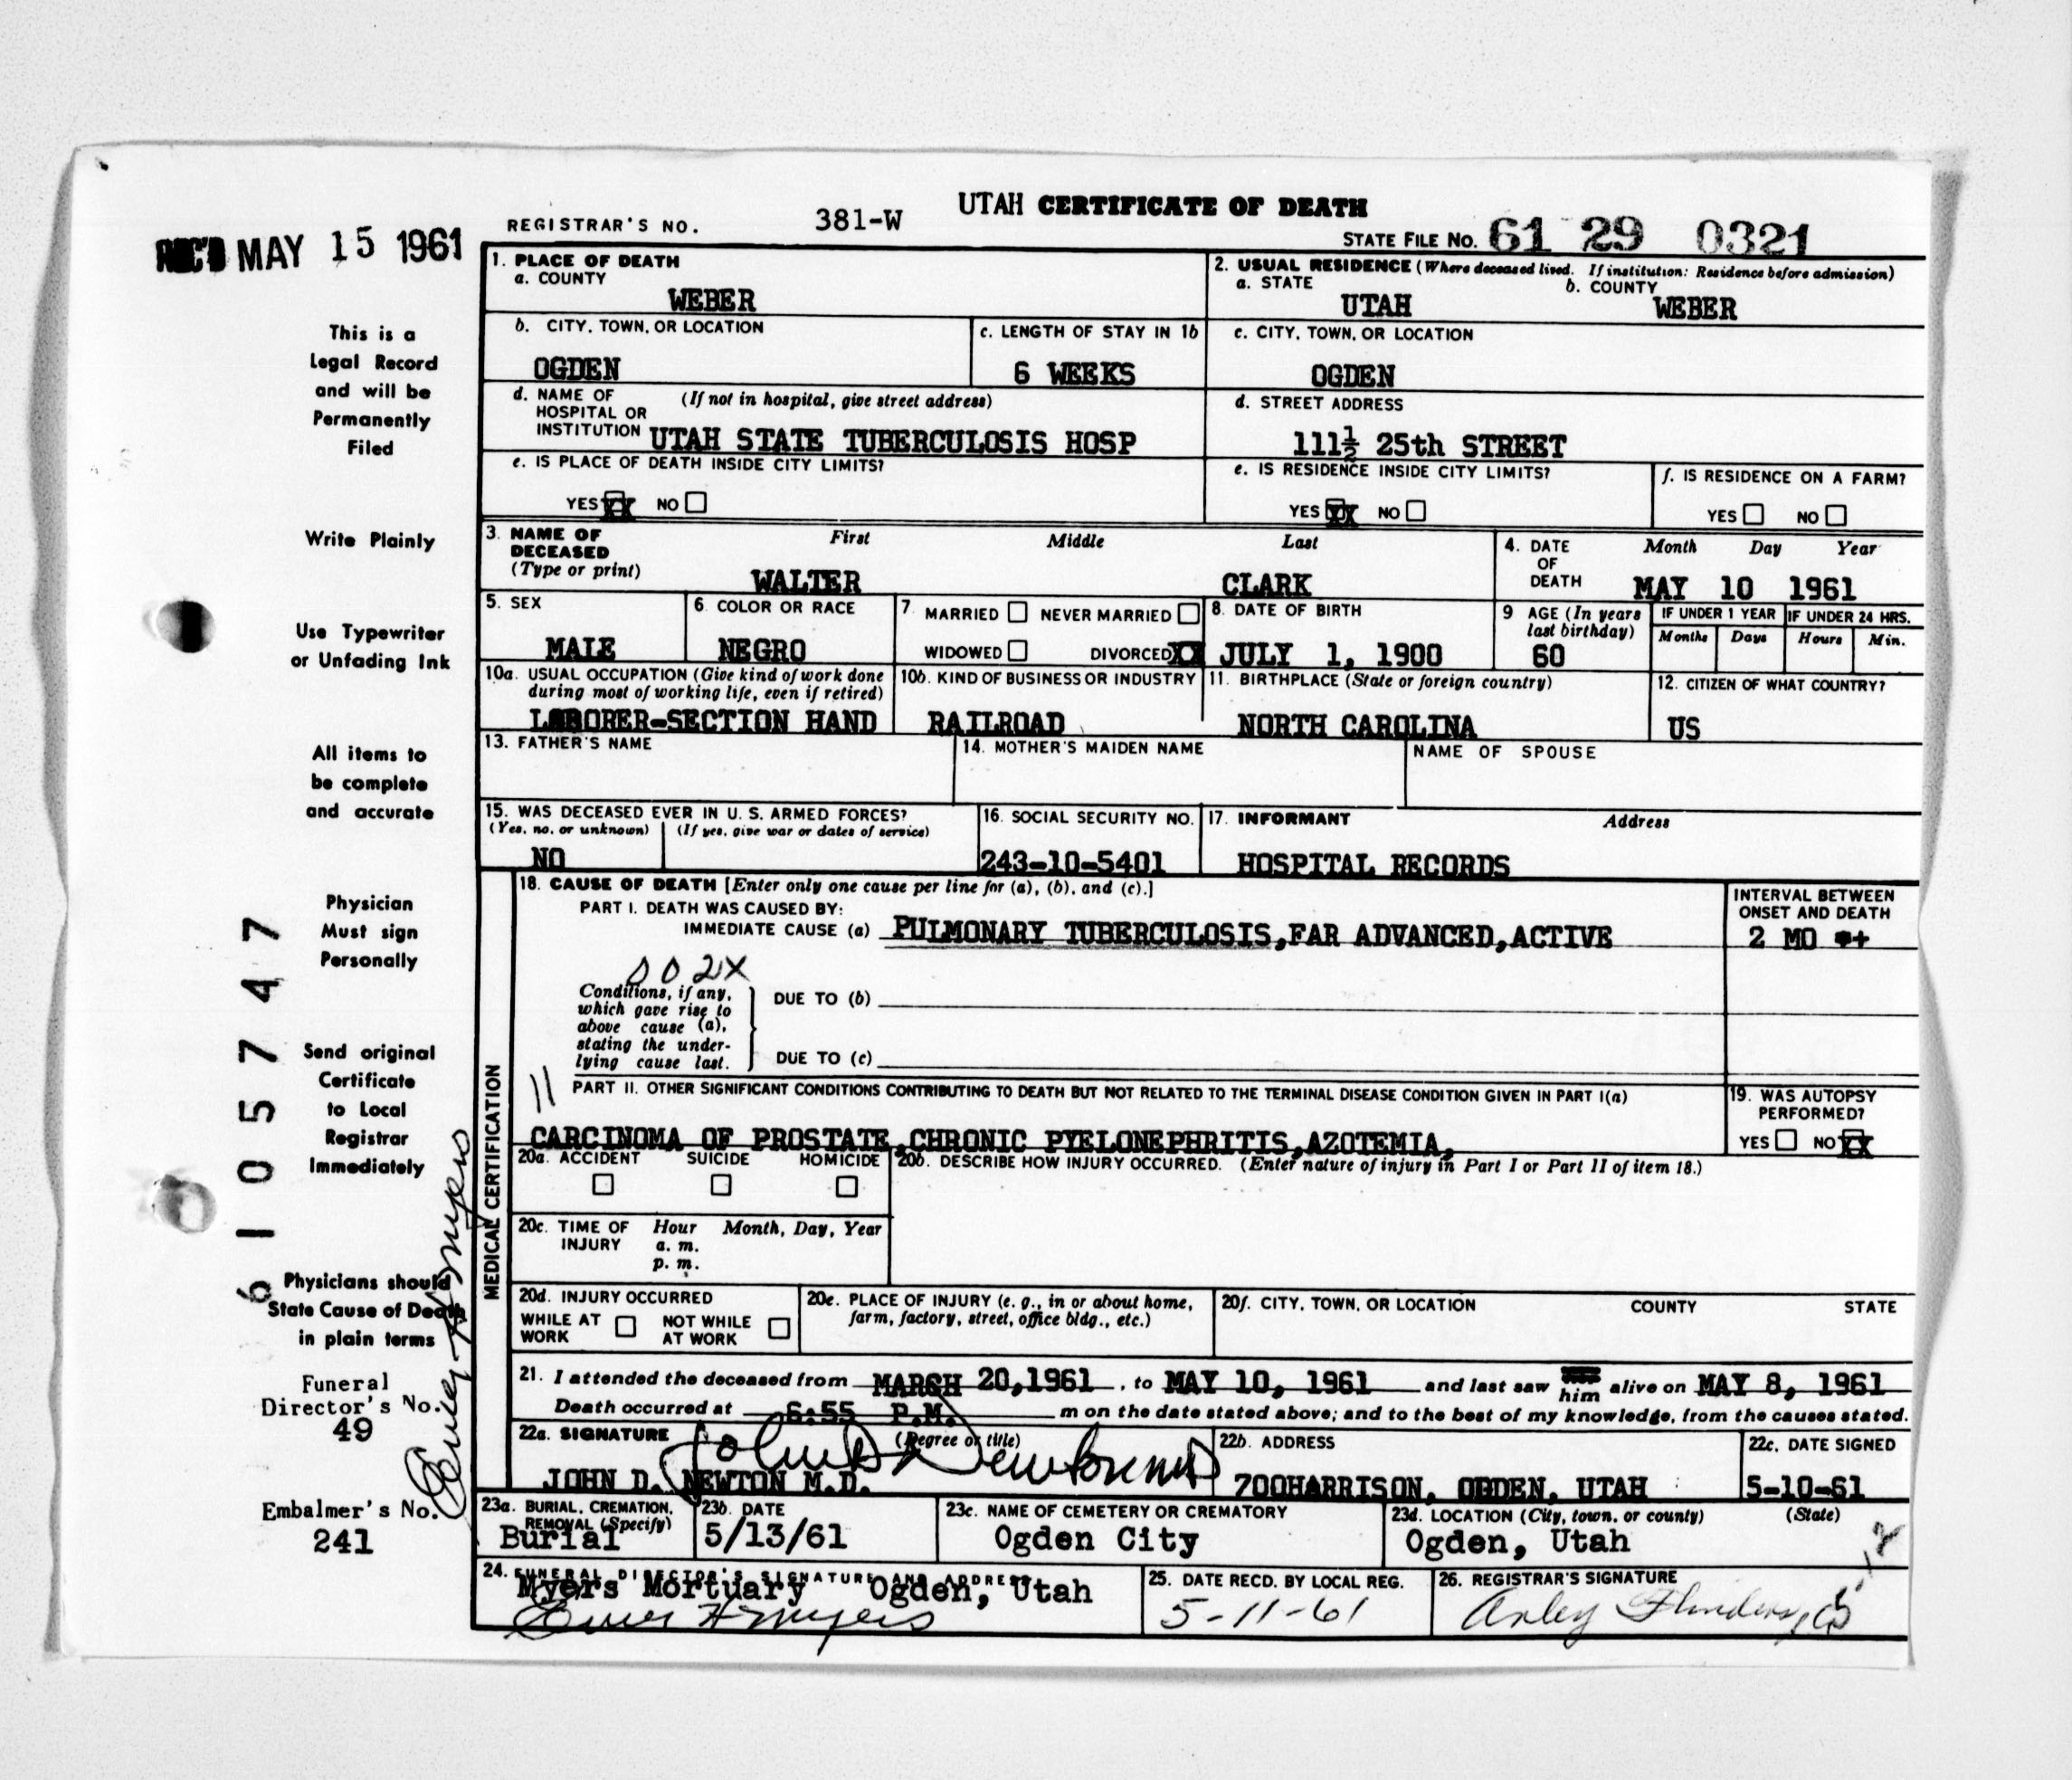 UTAH CERTIFICATE OF DEATH
REGISTRAR'S NO. 381-W
STATE FILE NO. 61 29 0321
REC'D MAY 15 1961
1. PLACE OF DEATH
a. COUNTY
WEBER
2. USUAL RESIDENCE (Where deceased lived. If institution: Residence before admission)
a. STATE b. COUNTY
UTAH WEBER
b. CITY, TOWN, OR LOCATION
OGDEN
c. LENGTH OF STAY IN 1b
6 WEEKS
c. CITY, TOWN, OR LOCATION
OGDEN
d. NAME OF HOSPITAL OR INSTITUTION (If not in hospital, give street address)
UTAH STATE TUBERCULOSIS HOSP
d. STREET ADDRESS
111½ 25th STREET
e. IS PLACE OF DEATH INSIDE CITY LIMITS?
YES XX NO
e. IS RESIDENCE INSIDE CITY LIMITS?
YES XX NO
f. IS RESIDENCE ON A FARM?
YES NO
3. NAME OF DECEASED (Type or print)
First Middle Last
WALTER CLARK
4. DATE OF DEATH
Month Day Year
MAY 10 1961
5. SEX
MALE
6. COLOR OR RACE
NEGRO
7. MARRIED NEVER MARRIED
WIDOWED DIVORCED XX
8. DATE OF BIRTH
JULY 1, 1900
9 AGE (In years last birthday)
60
IF UNDER 1 YEAR
Months Days
IF UNDER 24 HRS.
Hours Min.
10a. USUAL OCCUPATION (Give kind of work done during most of working life, even if retired)
LABORER-SECTION HAND
10b. KIND OF BUSINESS OR INDUSTRY
RAILROAD
11. BIRTHPLACE (State or foreign country)
NORTH CAROLINA
12. CITIZEN OF WHAT COUNTRY?
US
13. FATHER'S NAME
14. MOTHER'S MAIDEN NAME
NAME OF SPOUSE
15. WAS DECEASED EVER IN U. S. ARMED FORCES?
(Yes, no, or unknown) (If yes, give war or dates of service)
NO
16. SOCIAL SECURITY NO.
243-10-5401
17. INFORMANT Address
HOSPITAL RECORDS
18. CAUSE OF DEATH [Enter only one cause per line for (a), (b), and (c).]
PART I. DEATH WAS CAUSED BY:
IMMEDIATE CAUSE (a) PULMONARY TUBERCULOSIS,FAR ADVANCED,ACTIVE
INTERVAL BETWEEN ONSET AND DEATH
2 MO +
002X
Conditions, if any, which gave rise to above cause (a), stating the underlying cause last.
DUE TO (b)
DUE TO (c)
PART II. OTHER SIGNIFICANT CONDITIONS CONTRIBUTING TO DEATH BUT NOT RELATED TO THE TERMINAL DISEASE CONDITION GIVEN IN PART I(a)
CARCINOMA OF PROSTATE,CHRONIC PYELONEPHRITIS,AZOTEMIA,
19. WAS AUTOPSY PERFORMED?
YES NO XX
20a. ACCIDENT SUICIDE HOMICIDE
20b. DESCRIBE HOW INJURY OCCURRED. (Enter nature of injury in Part I or Part II of item 18.)
20c. TIME OF INJURY Hour Month, Day, Year
a. m.
p. m.
20d. INJURY OCCURRED
WHILE AT WORK NOT WHILE AT WORK
20e. PLACE OF INJURY (e. g., in or about home, farm, factory, street, office bldg., etc.)
20f. CITY, TOWN, OR LOCATION COUNTY STATE
21. I attended the deceased from MARCH 20,1961, to MAY 10, 1961 and last saw him alive on MAY 8, 1961
Death occurred at 6:55 P.M. m on the date stated above; and to the best of my knowledge, from the causes stated.
22a. SIGNATURE (Degree or title)
John D Newton MD
JOHN D. NEWTON M.D.
22b. ADDRESS
700HARRISON, OGDEN, UTAH
22c. DATE SIGNED
5-10-61
23a. BURIAL, CREMATION, REMOVAL (Specify)
Burial
23b. DATE
5/13/61
23c. NAME OF CEMETERY OR CREMATORY
Ogden City
23d. LOCATION (City, town, or county) (State)
Ogden, Utah
24. FUNERAL DIRECTOR'S SIGNATURE AND ADDRESS
Myers Mortuary Ogden, Utah
25. DATE RECD. BY LOCAL REG.
5-11-61
26. REGISTRAR'S SIGNATURE
MEDICAL CERTIFICATION
This is a
Legal Record
and will be
Permanently
Filed
Write Plainly
Use Typewriter
or Unfading Ink
All items to
be complete
and accurate
Physician
Must sign
Personally
Send original
Certificate
to Local
Registrar
Immediately
Physicians should
State Cause of Death
in plain terms
Funeral
Director's No.
49
Embalmer's No.
241
6105747